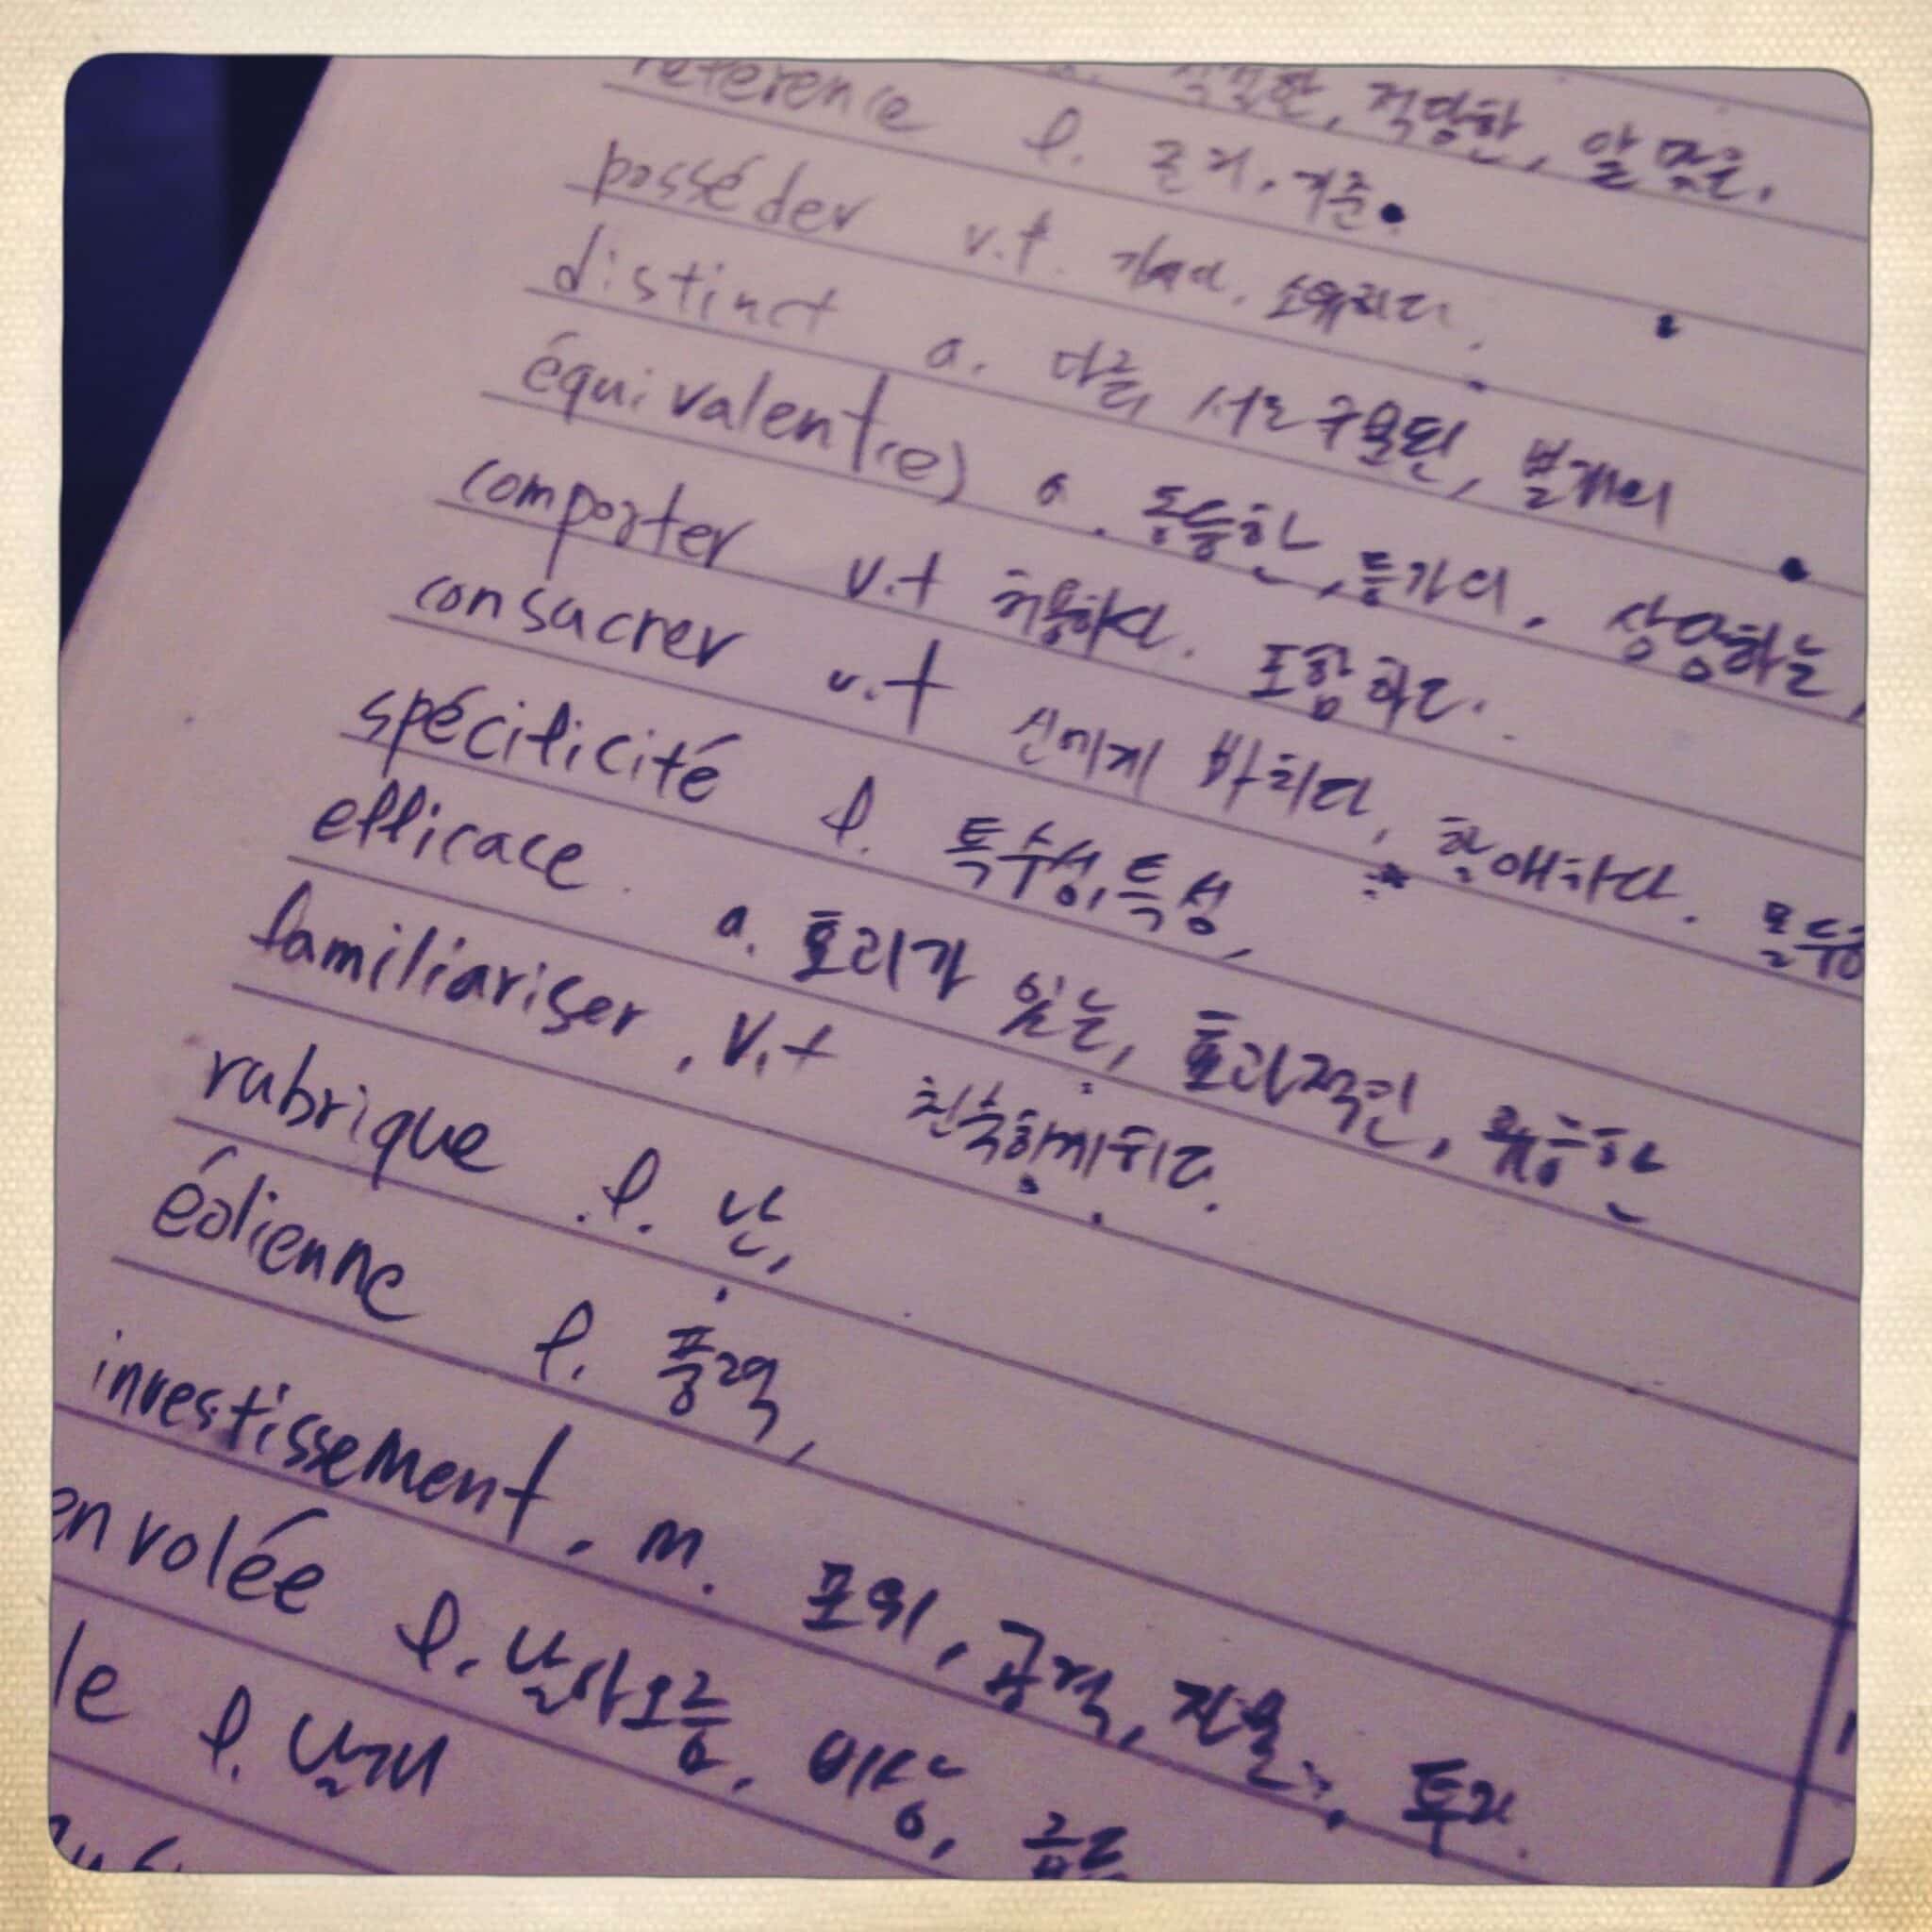 적당한, 알맞은,
reference f. 근거, 기준.
posséder v.t. 가지다, 소유하다.
distinct a. 다른, 서로 구분된, 별개의
équivalent(e) a. 동등한, 등가의, 상응하는,
comporter v.t 허용하다. 포함하다.
consacrer v.t 신에게 바치다, 할애하다.
spécificité f. 특수성, 특성,
efficace. a. 효력가 있는, 효과적인, 유효한
familiariser, v.t 친숙하게하다.
rubrique f. 난,
éolienne f. 풍력,
investissement, m. 포위, 공격, 진울, 투자.
envolée f. 날아오름, 비상, 급등
le f. 날개